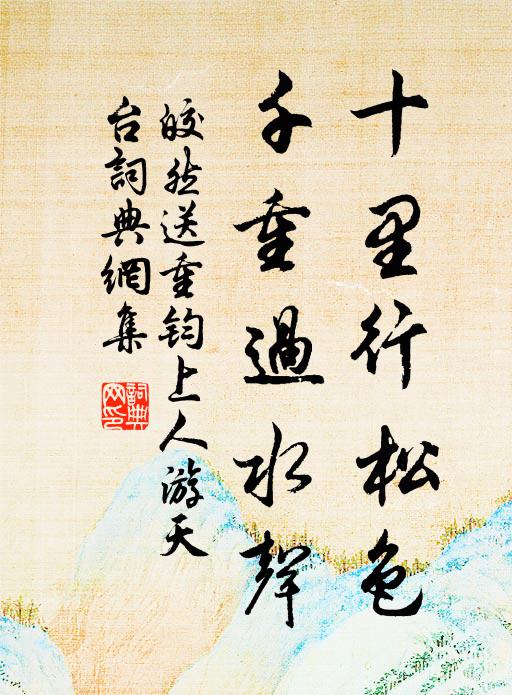 十里行松色
千重過水聲
皎然送重鈞上人游天
台詞典網集
詞典
网印